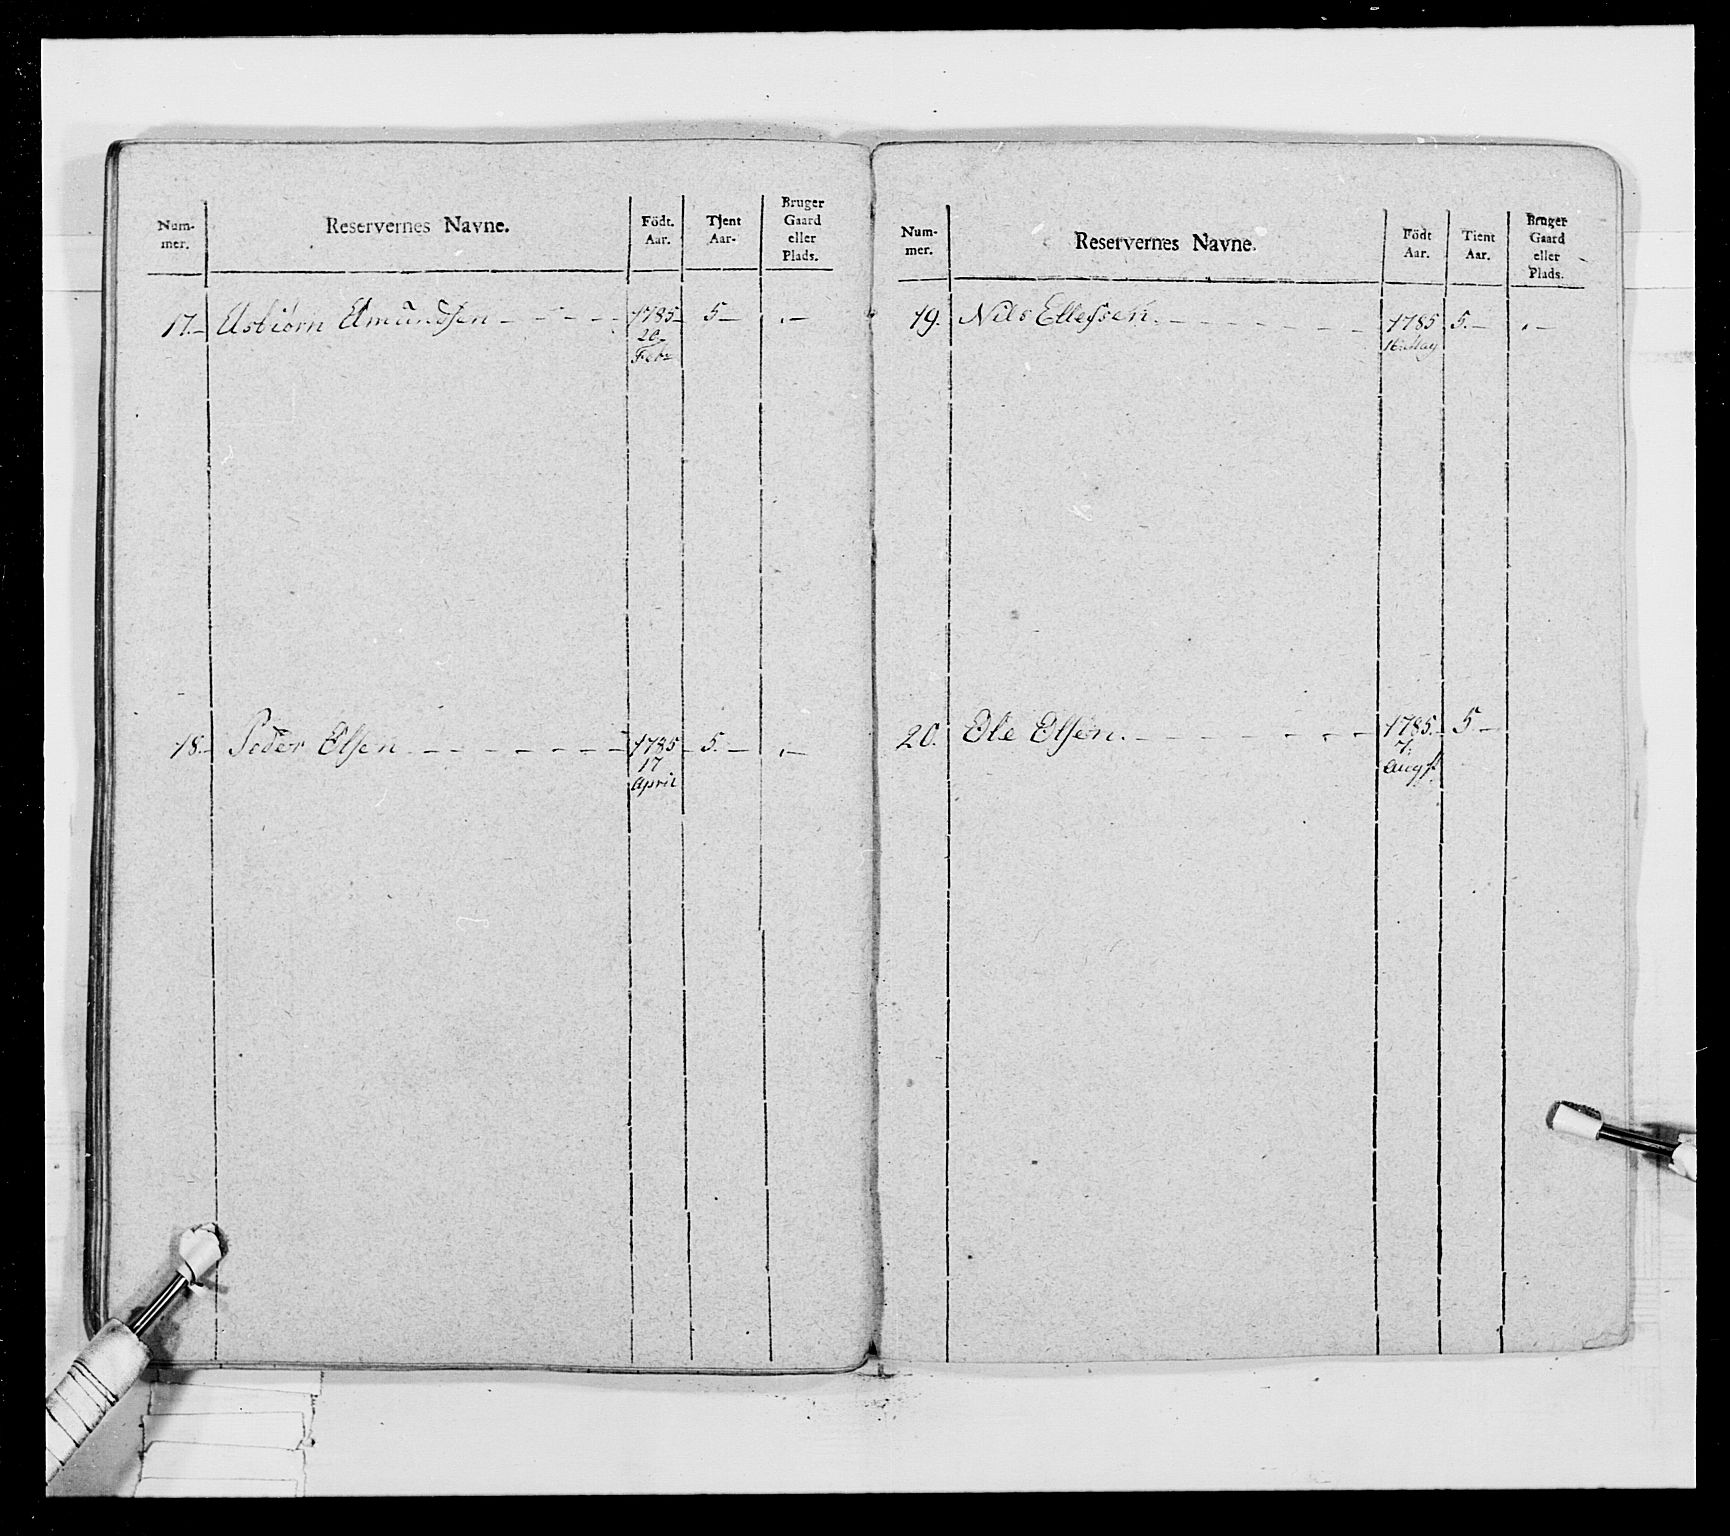 Num-
mer.
Reservernes Navne.
Födt.
Aar.
Tjent
Aar.
Bruger
Gaard
eller
Plads.
17.- Asbiörn Amundsen - - - - 1785- 5- .-
20-
Febr
18.- Peder Olsen - - - - - - - 1785- 5.- .-
17
April
Num-
mer.
Reservernes Navne.
Födt
Aar.
Tient
Aar.
Bruger
Gaard
eller
Plads.
19. Nils Ellefsen. - - - - - - - 1785 5.- .-
16 May
20. Ole Olsen. - - - - - - - 1785. 5-
7.
Augst